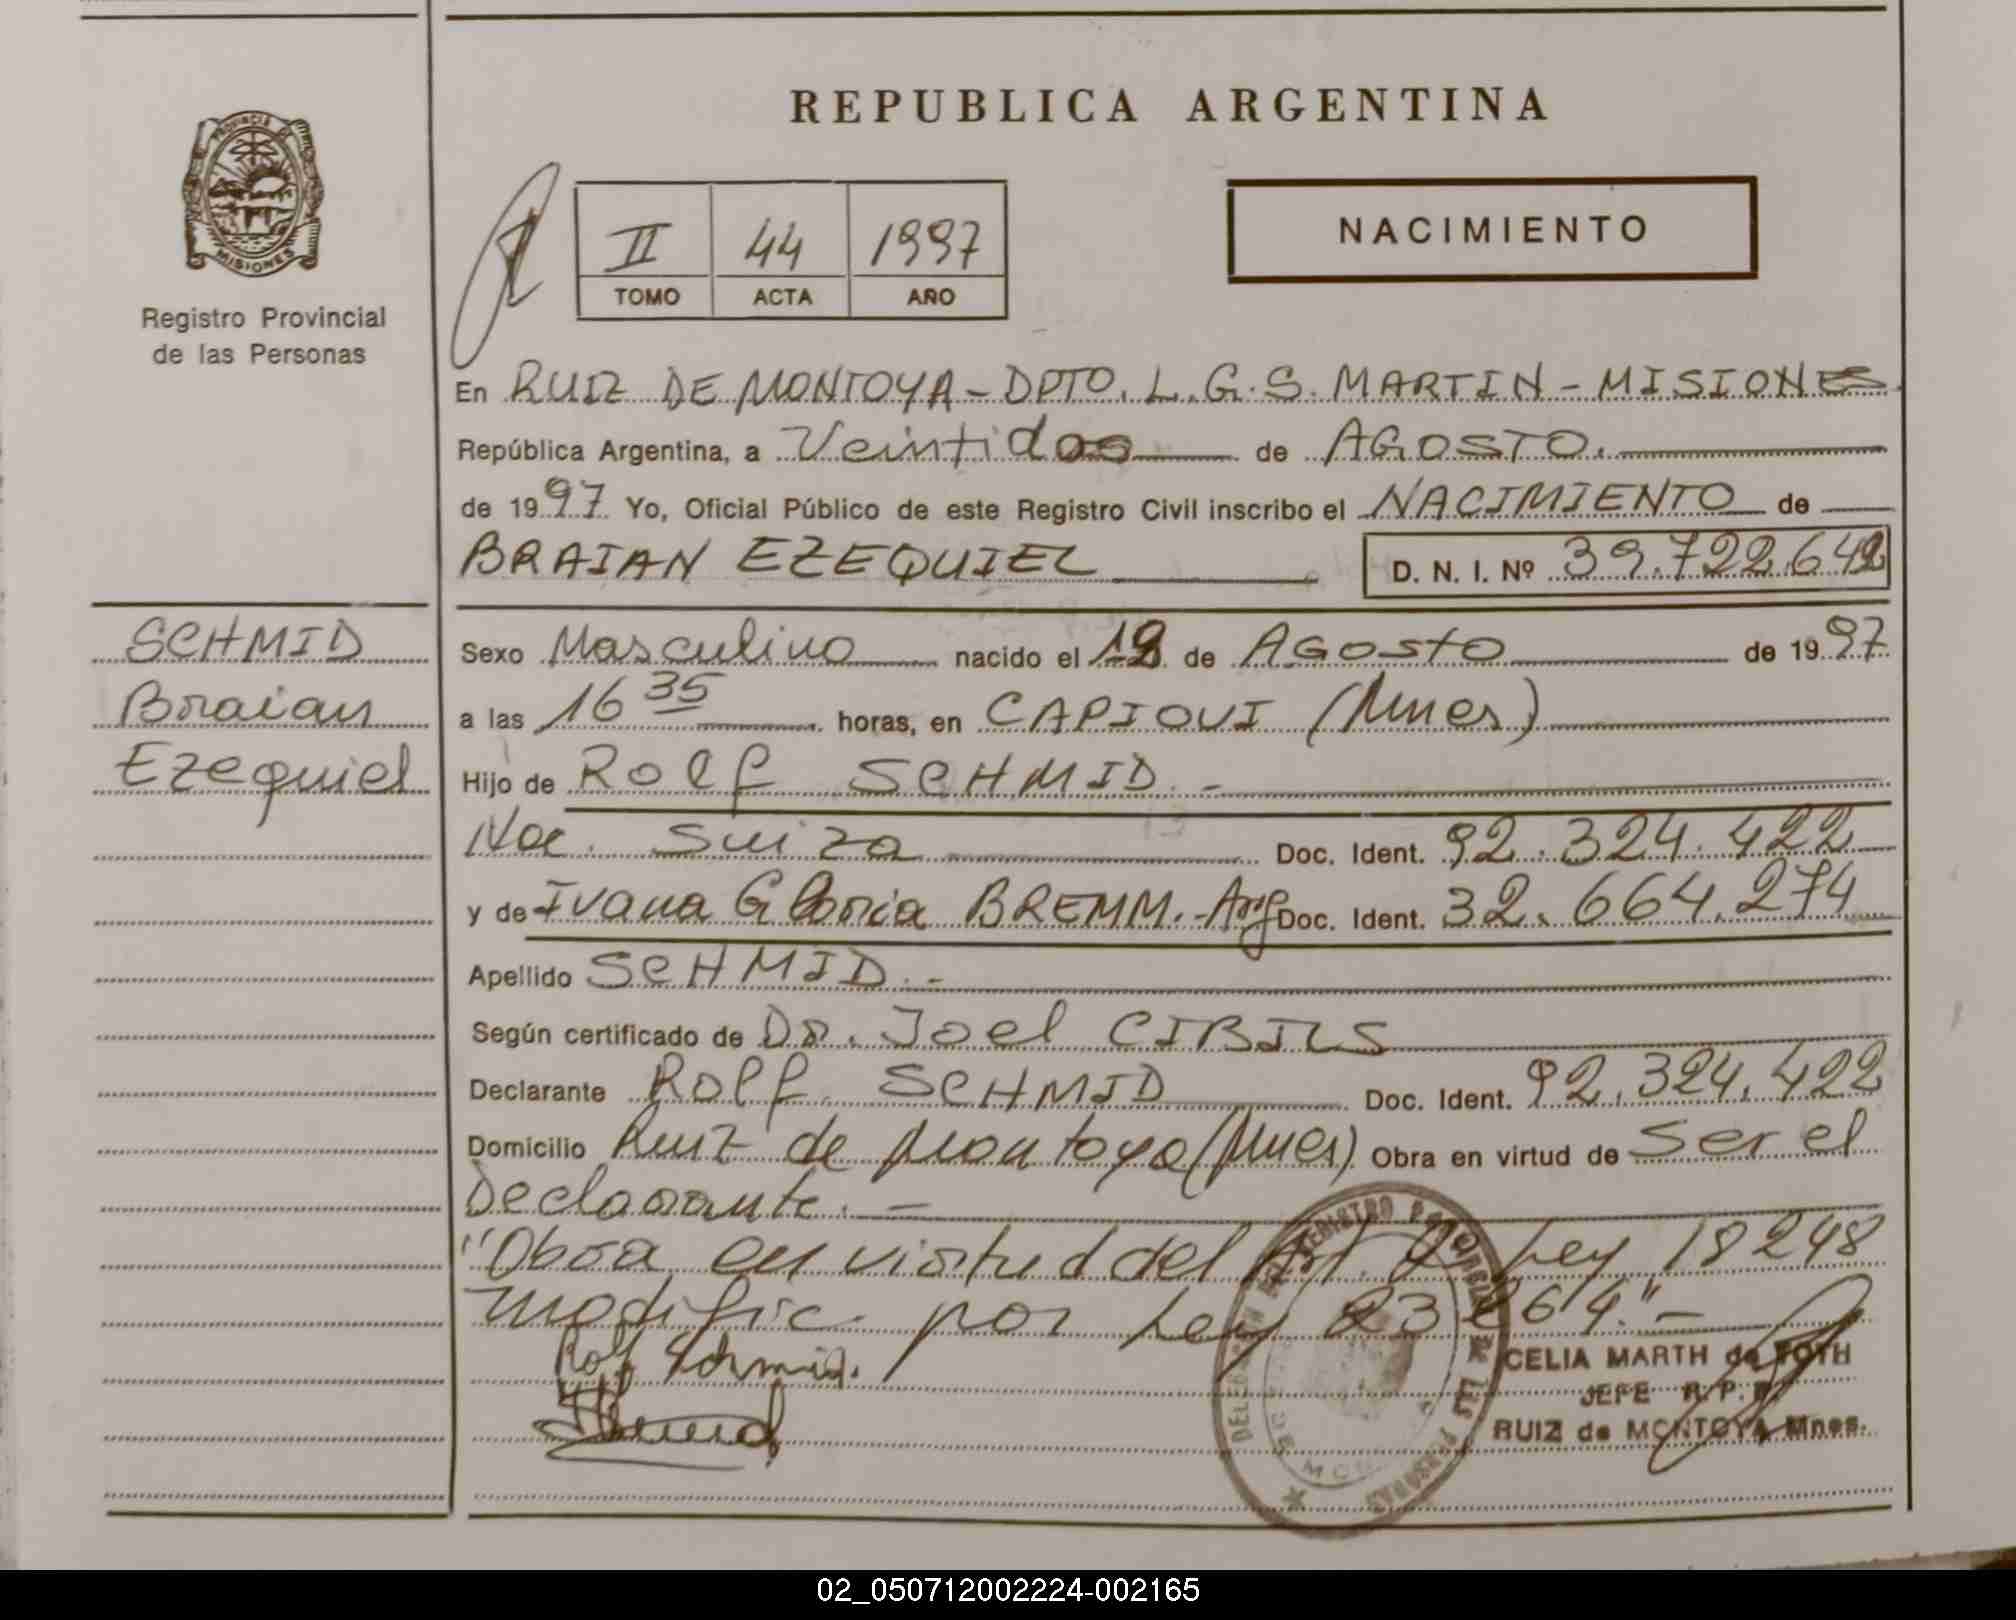 REPUBLICA ARGENTINA
PROVINCIA DE MISIONES
Registro Provincial
de las Personas
II 44 1997
TOMO ACTA AÑO
NACIMIENTO
En RUIZ DE MONTOYA - DPTO. L. G. S. MARTIN - MISIONES
República Argentina, a Veintidos de AGOSTO.
de 1997 Yo, Oficial Público de este Registro Civil inscribo el NACIMIENTO de
BRAIAN EZEQUIEL D. N. I. Nº 39.722.642
SCHMID
Braian
Ezequiel
Sexo Masculino nacido el de AGosto de 1997
a las 16 35 horas, en CAPIOVI (Mnes)
Hijo de Rolf SCHMID. -
Nac. Suiza Doc. Ident. 92.324.422
y de Ivana Gloria BREMM.- Arg Doc. Ident. 32.664.274
Apellido SCHMID. -
Según certificado de Dr. Joel CIBILS
Declarante Rolf SCHMID Doc. Ident. 92.324.422
Domicilio Ruiz de Montoya (Mnes) Obra en virtud de Ser el
Declarante. -
"Obra en virtud del Art. 2 Ley 18248
modific. por Ley 23264." -
Rolf Schmid.
CELIA MARTH de TOTH
JEFE R. P. P.
RUIZ de MONTOYA Mnes.
02_050712002224-002165